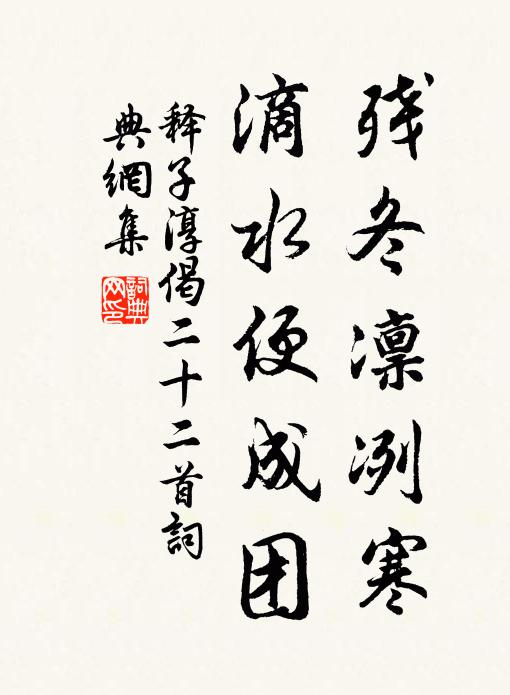 残冬凛冽寒
滴水便成团
释子淳偈二十二首詞
典網集
詞典網印